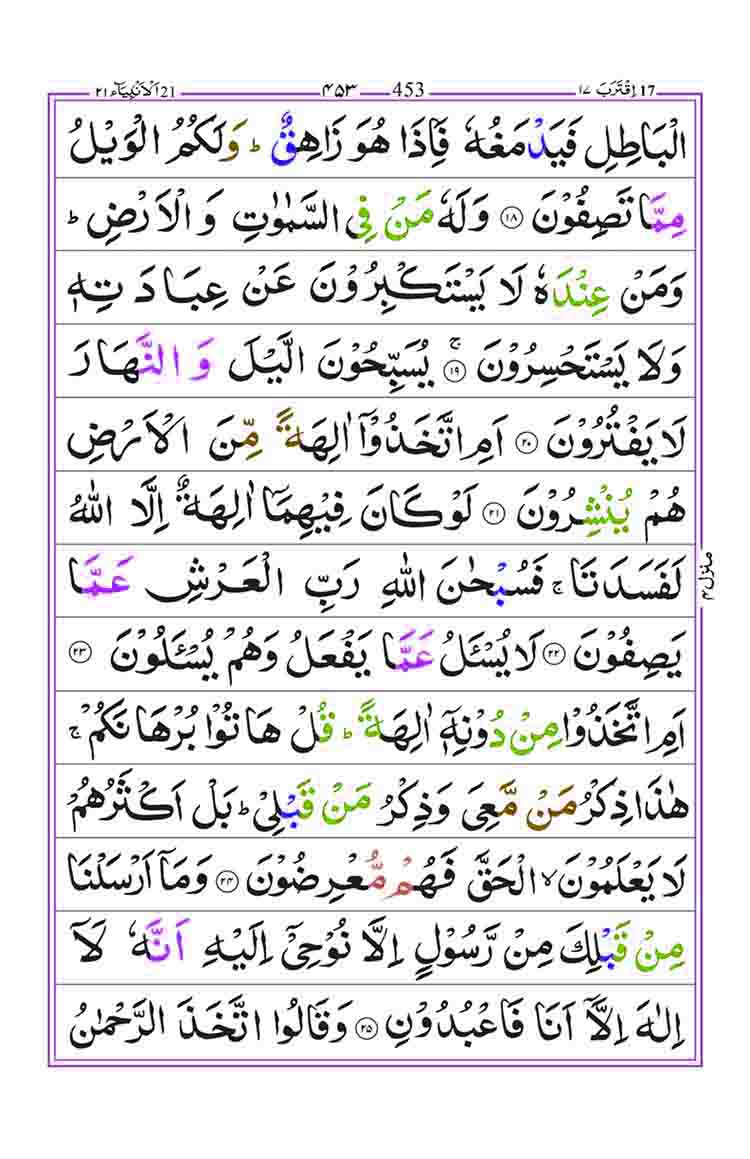 17 اِقْتَرَبَ ١٧ 453 ۴۵۳ 21 اَلْاَنْۢبِيَآء ٢١
الْبَاطِلِ فَيَدْمَغُهٗ فَاِذَا هُوَ زَاهِقٌ ؕ وَلَكُمُ الْوَيْلُ
مِمَّا تَصِفُوْنَ ﴿۱۸﴾ وَلَهٗ مَنْ فِى السَّمٰوٰتِ وَ الْاَرْضِ ؕ
وَمَنْ عِنْدَهٗ لَا يَسْتَكْبِرُوْنَ عَنْ عِبَادَتِهٖ
وَلَا يَسْتَحْسِرُوْنَ ۚ﴿۱۹﴾ يُسَبِّحُوْنَ الَّيْلَ وَ النَّهَارَ
لَا يَفْتُرُوْنَ ﴿۲۰﴾ اَمِ اتَّخَذُوْۤا اٰلِهَةً مِّنَ الْاَرْضِ
هُمْ يُنْشِرُوْنَ ﴿۲۱﴾ لَوْ كَانَ فِيْهِمَاۤ اٰلِهَةٌ اِلَّا اللّٰهُ
لَفَسَدَتَا ۚ فَسُبْحٰنَ اللّٰهِ رَبِّ الْعَرْشِ عَمَّا
يَصِفُوْنَ ﴿۲۲﴾ لَا يُسْـَٔلُ عَمَّا يَفْعَلُ وَهُمْ يُسْـَٔلُوْنَ ﴿۲۳﴾
اَمِ اتَّخَذُوْا مِنْ دُوْنِهٖۤ اٰلِهَةً ؕ قُلْ هَاتُوْا بُرْهَانَكُمْ ۚ
هٰذَا ذِكْرُ مَنْ مَّعِىَ وَذِكْرُ مَنْ قَبْلِىْ ؕ بَلْ اَكْثَرُهُمْ
لَا يَعْلَمُوْنَ ۙ الْحَقَّ فَهُمْ مُّعْرِضُوْنَ ﴿۲۴﴾ وَمَاۤ اَرْسَلْنَا
مِنْ قَبْلِكَ مِنْ رَّسُوْلٍ اِلَّا نُوْحِىْۤ اِلَيْهِ اَنَّهٗ لَاۤ
اِلٰهَ اِلَّاۤ اَنَا فَاعْبُدُوْنِ ﴿۲۵﴾ وَقَالُوا اتَّخَذَ الرَّحْمٰنُ
منزل ۴